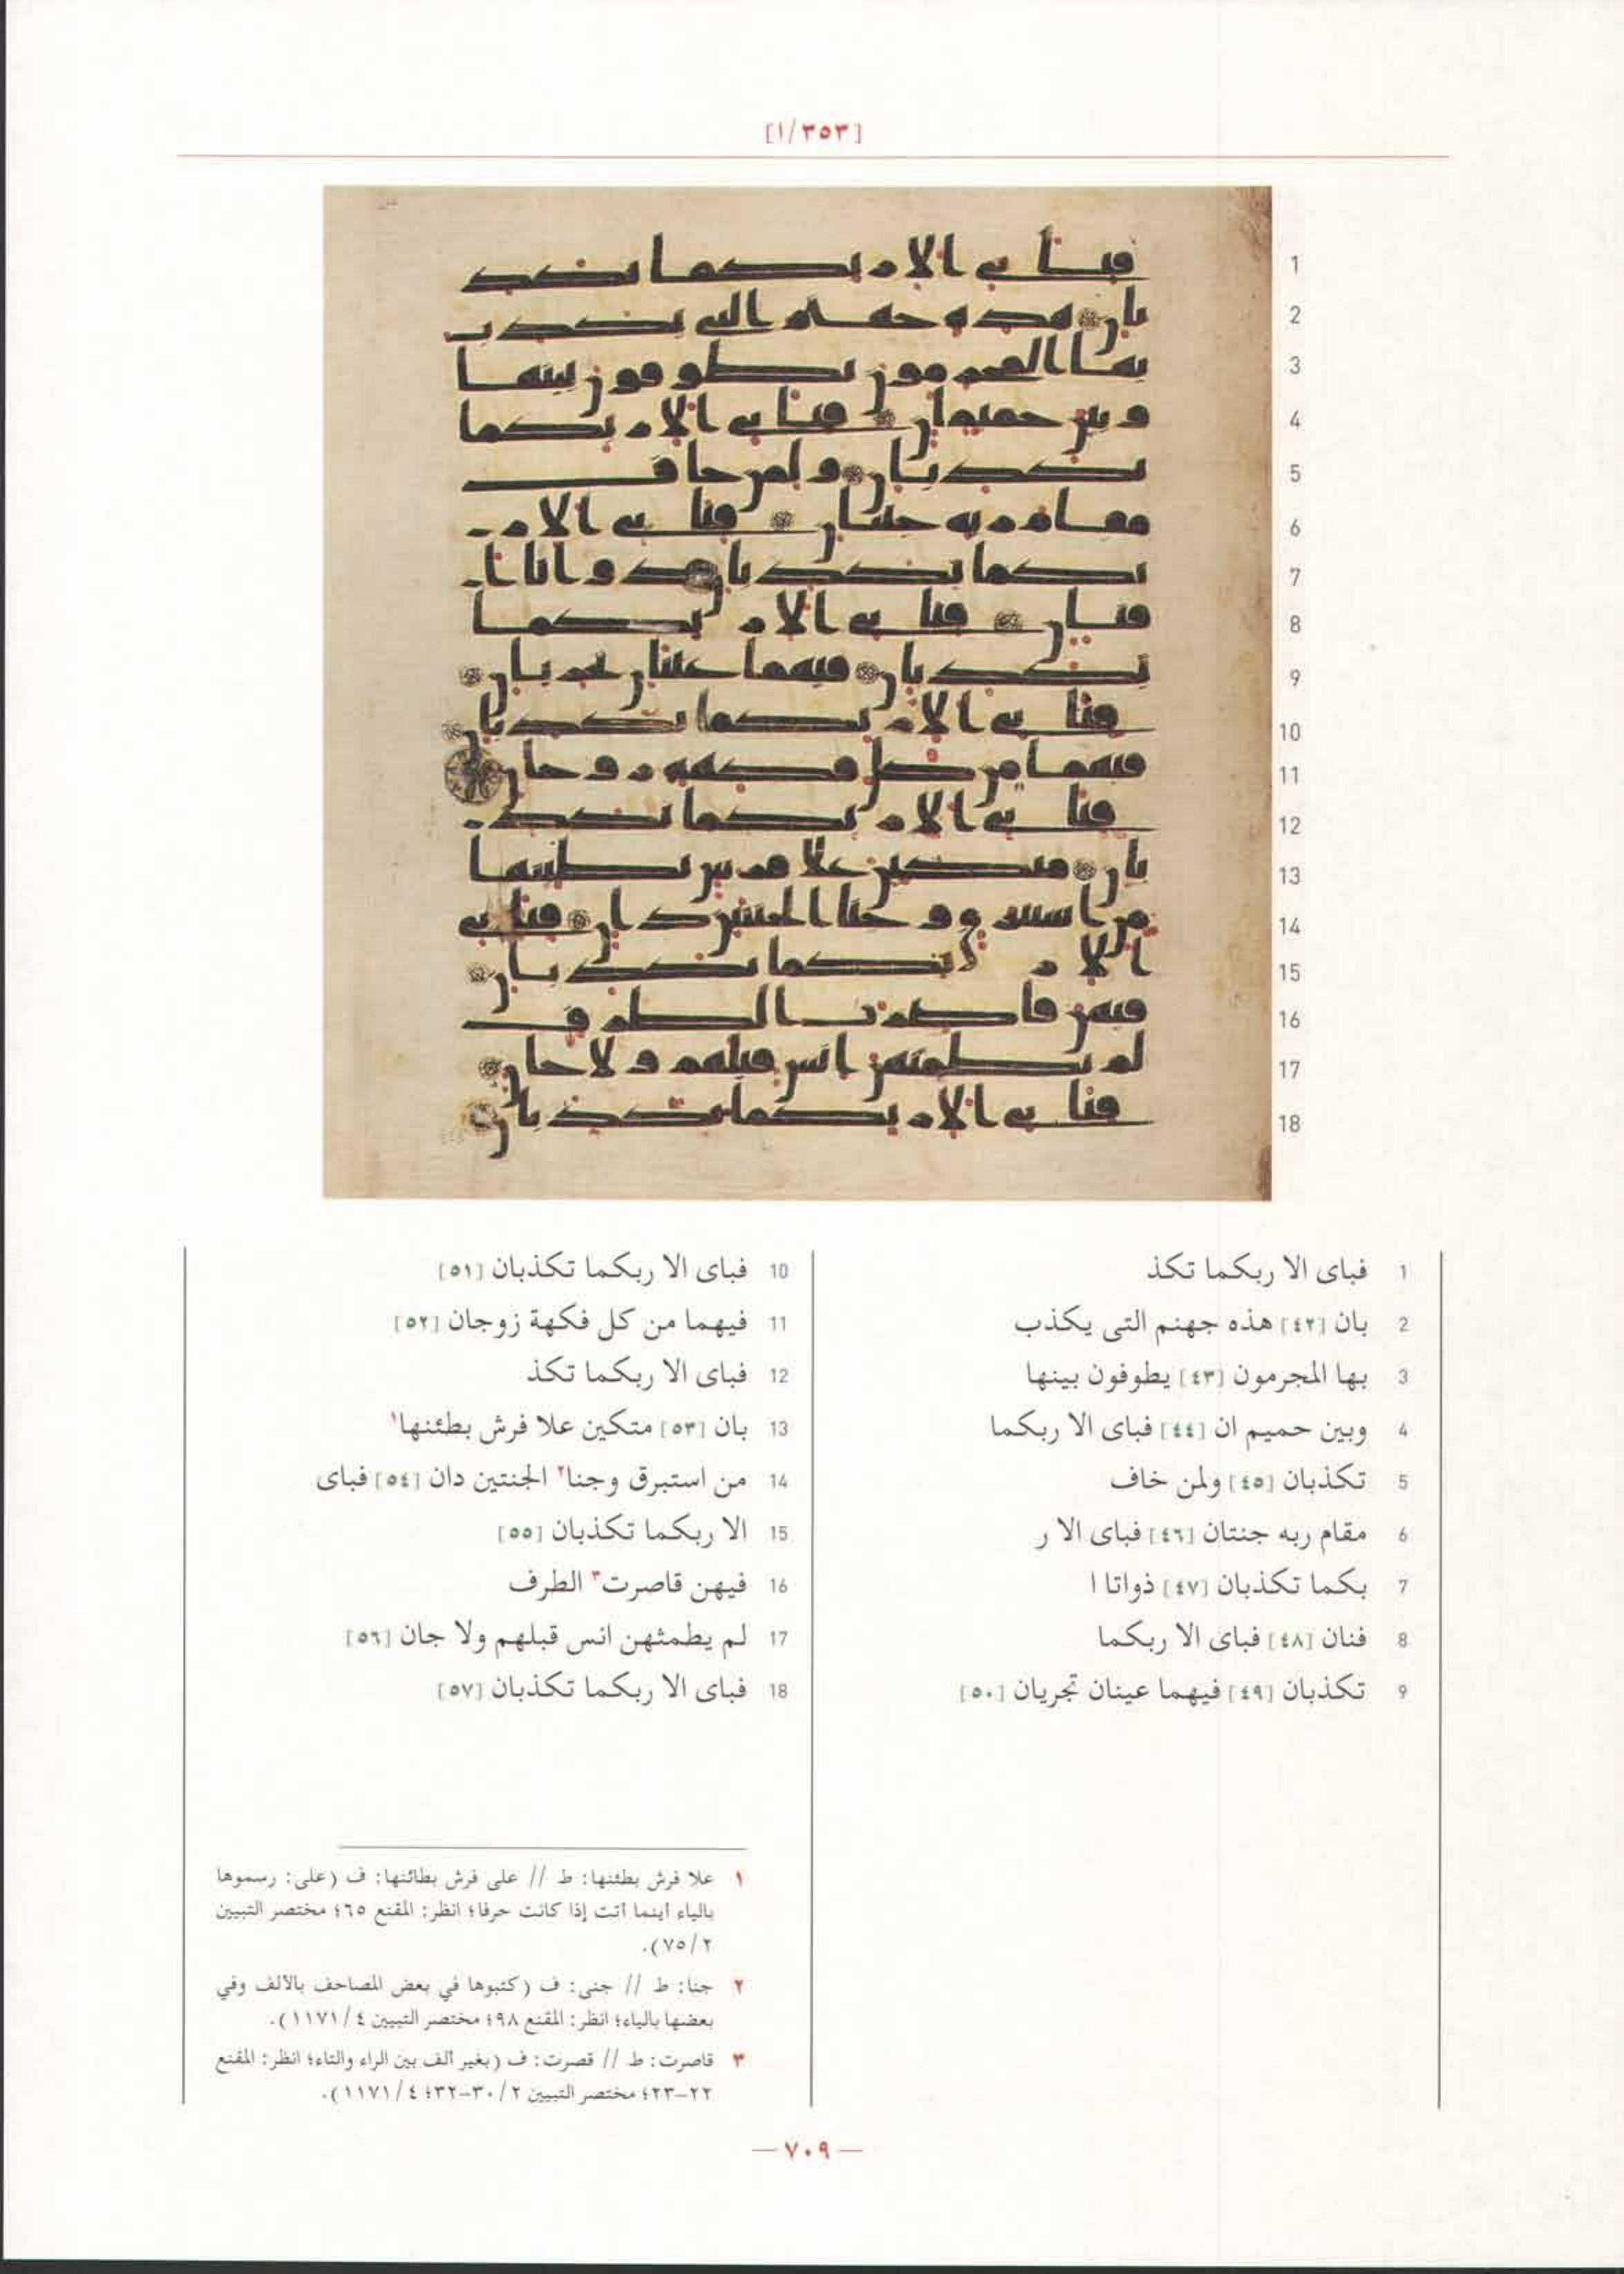 [١/٣٥٣]
1 فباى الا ربكما تكذ
2 بان [٤٢] هذه جهنم التى يكذب
3 بها المجرمون [٤٣] يطوفون بينها
4 وبين حميم ان [٤٤] فباى الا ربكما
5 تكذبان [٤٥] ولمن خاف
6 مقام ربه جنتان [٤٦] فباى الا ر
7 بكما تكذبان [٤٧] ذواتا ا
8 فنان [٤٨] فباى الا ربكما
9 تكذبان [٤٩] فيهما عينان تجريان [٥٠]
10 فباى الا ربكما تكذبان [٥١]
11 فيهما من كل فكهة زوجان [٥٢]
12 فباى الا ربكما تكذ
13 بان [٥٣] متكين علا فرش بطئنها١
14 من استبرق وجنا٢ الجنتين دان [٥٤] فباى
15 الا ربكما تكذبان [٥٥]
16 فيهن قاصرت٣ الطرف
17 لم يطمثهن انس قبلهم ولا جان [٥٦]
18 فباى الا ربكما تكذبان [٥٧]
١ علا فرش بطئنها: ط // على فرش بطائنها: ف (على: رسموها
بالياء أينما أتت إذا كانت حرفا؛ انظر: المقنع ٦٥؛ مختصر التبيين
٢/٧٥).
٢ جنا: ط // جنى: ف (كتبوها في بعض المصاحف بالألف وفي
بعضها بالياء؛ انظر: المقنع ٩٨؛ مختصر التبيين ٤/١١٧١).
٣ قاصرت: ط // قصرت: ف (بغير ألف بين الراء والتاء؛ انظر: المقنع
٢٢–٢٣؛ مختصر التبيين ٢/٣٠–٣٢؛ ٤/١١٧١).
— ٧٠٩ —